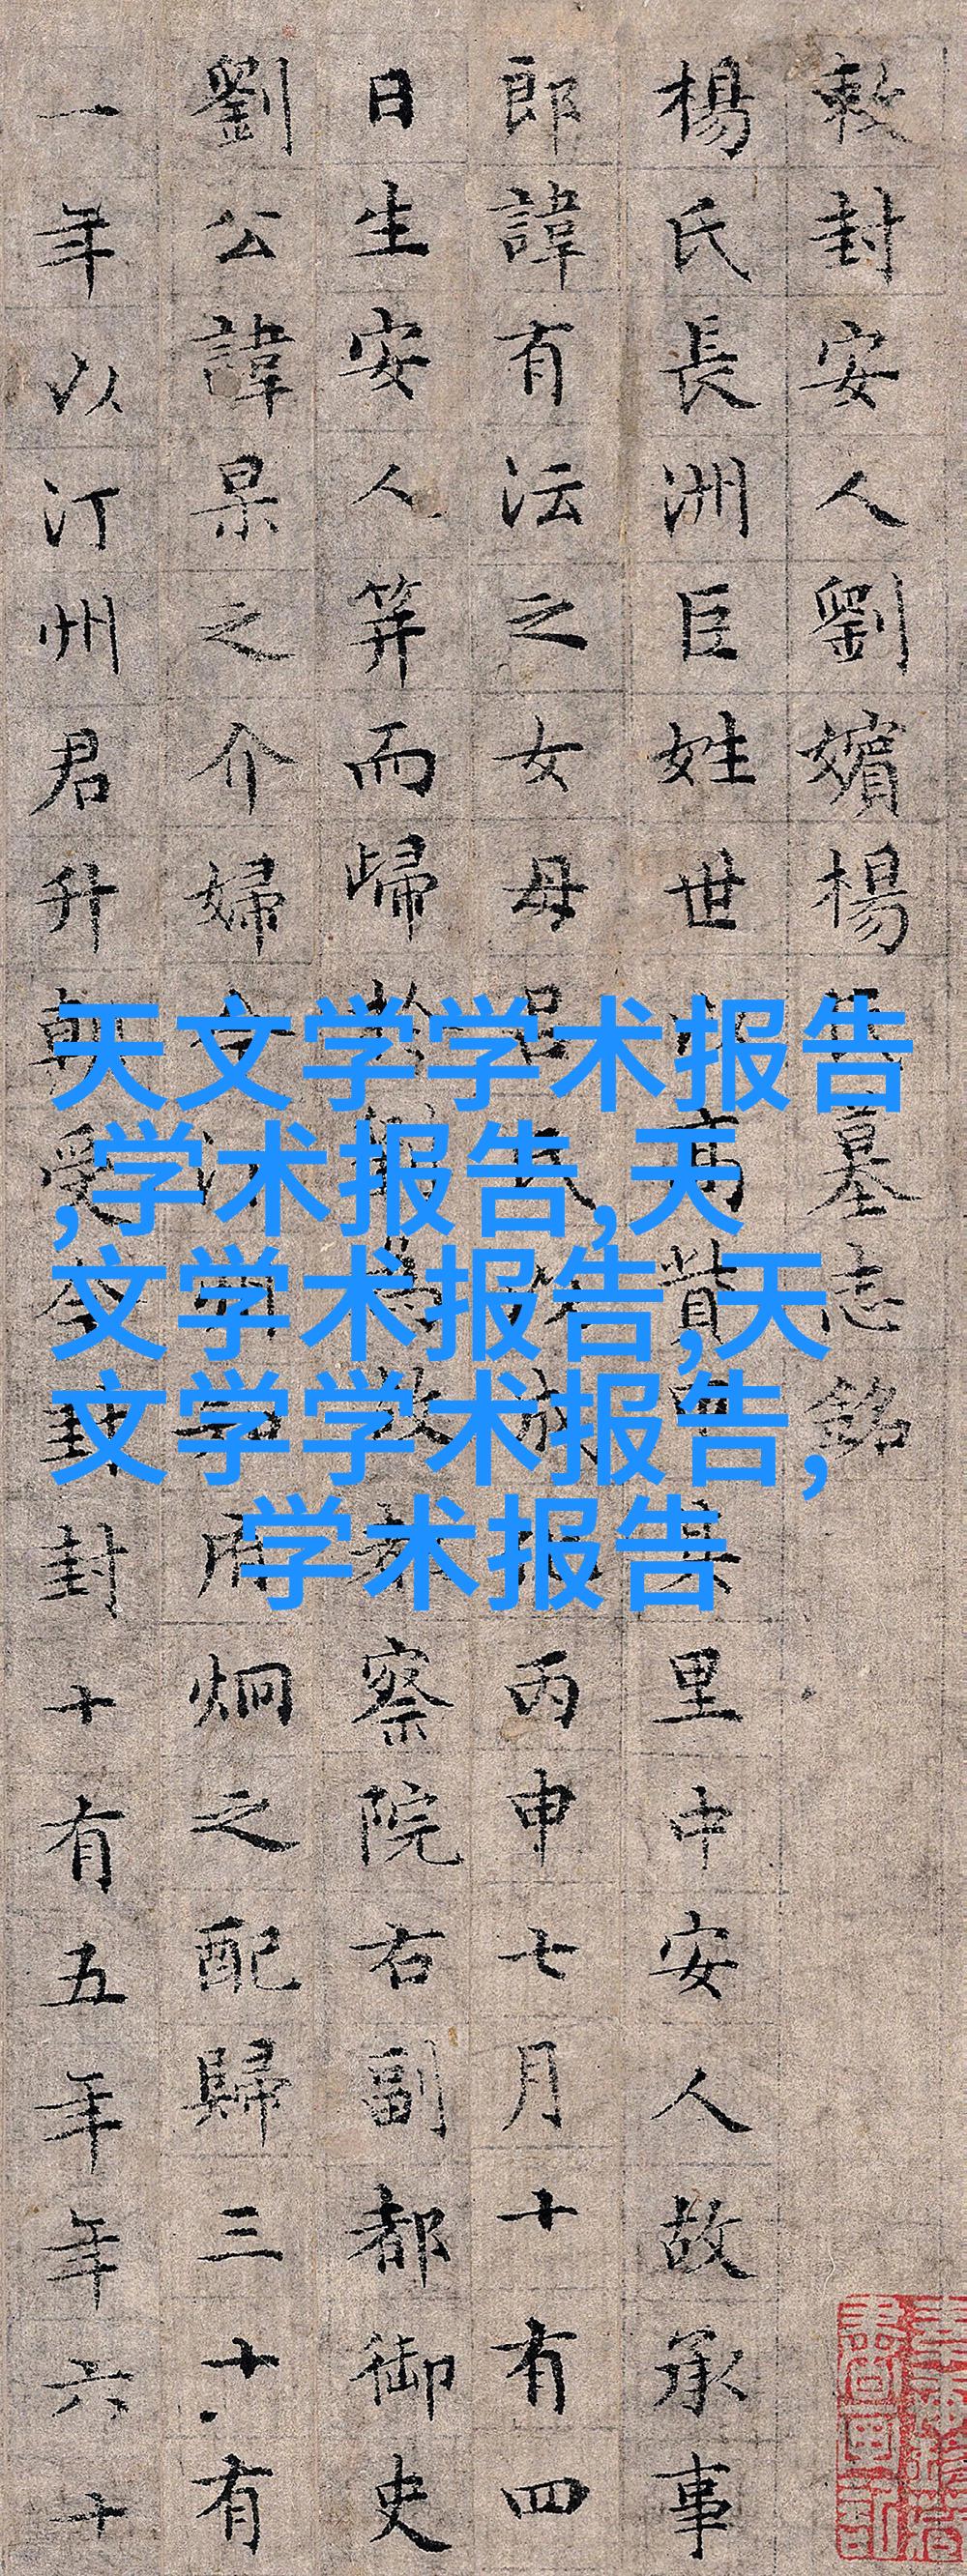 敕封安人劉嬪楊氏墓志銘
楊氏長洲巨姓世以高貲甲其里中安人故承事
郎諱有沄之女母呂氏以成化丙申七月十有四
日生安人笄而歸於為故都察院右副都御史
劉公諱杲之介婦今汀州知府炯之配歸三十有
一年以汀州君升朝受今封封十有五年年六十
天文学学术报告
,学术报告,天
文学术报告,天
文学学术报告,
学术报告